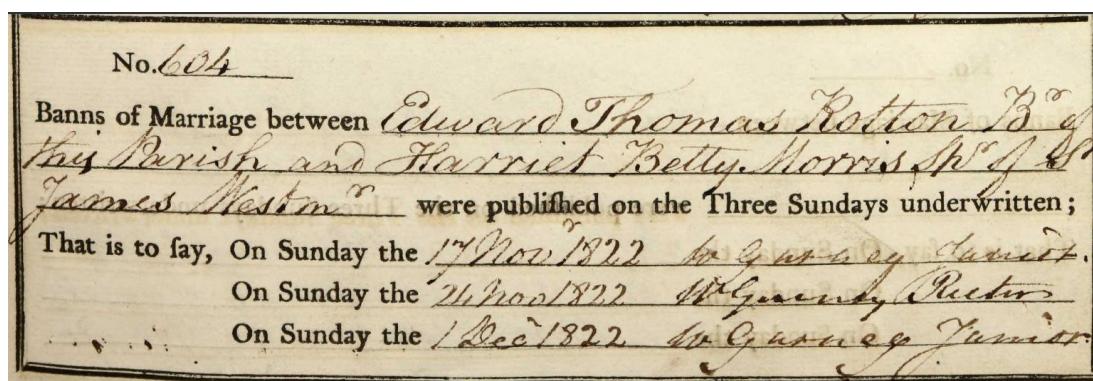 No. 604
Banns of Marriage between Edward Thomas Rotton Br of
this Parish and Harriet Betty Morris Spr of St
James Westmr were publiſhed on the Three Sundays underwritten;
That is to ſay, On Sunday the 17 Novr 1822 W Gurney Junior.
On Sunday the 24 Nov 1822 W Gurney Rector
On Sunday the 1 Decr 1822 W Gurney Junior